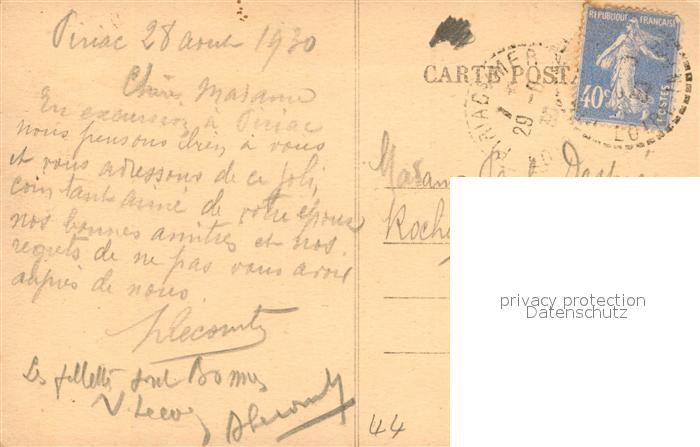 Piriac 28 aout 1930
Chère Madame
En excursion à Piriac
nous pensons bien à vous
et vous adressons de ce joli
coin tant aimé de votre époux
nos bonnes amitiés et nos
regrets de ne pas vous avoir
auprès de nous.
Lecomte
Les fillettes sont Bonnes
CARTE POSTA
REPUBLIQUE FRANÇAISE
40c
POSTES
PIRIAC S MER
29
Madame
Roche
privacy protection
Datenschutz
44